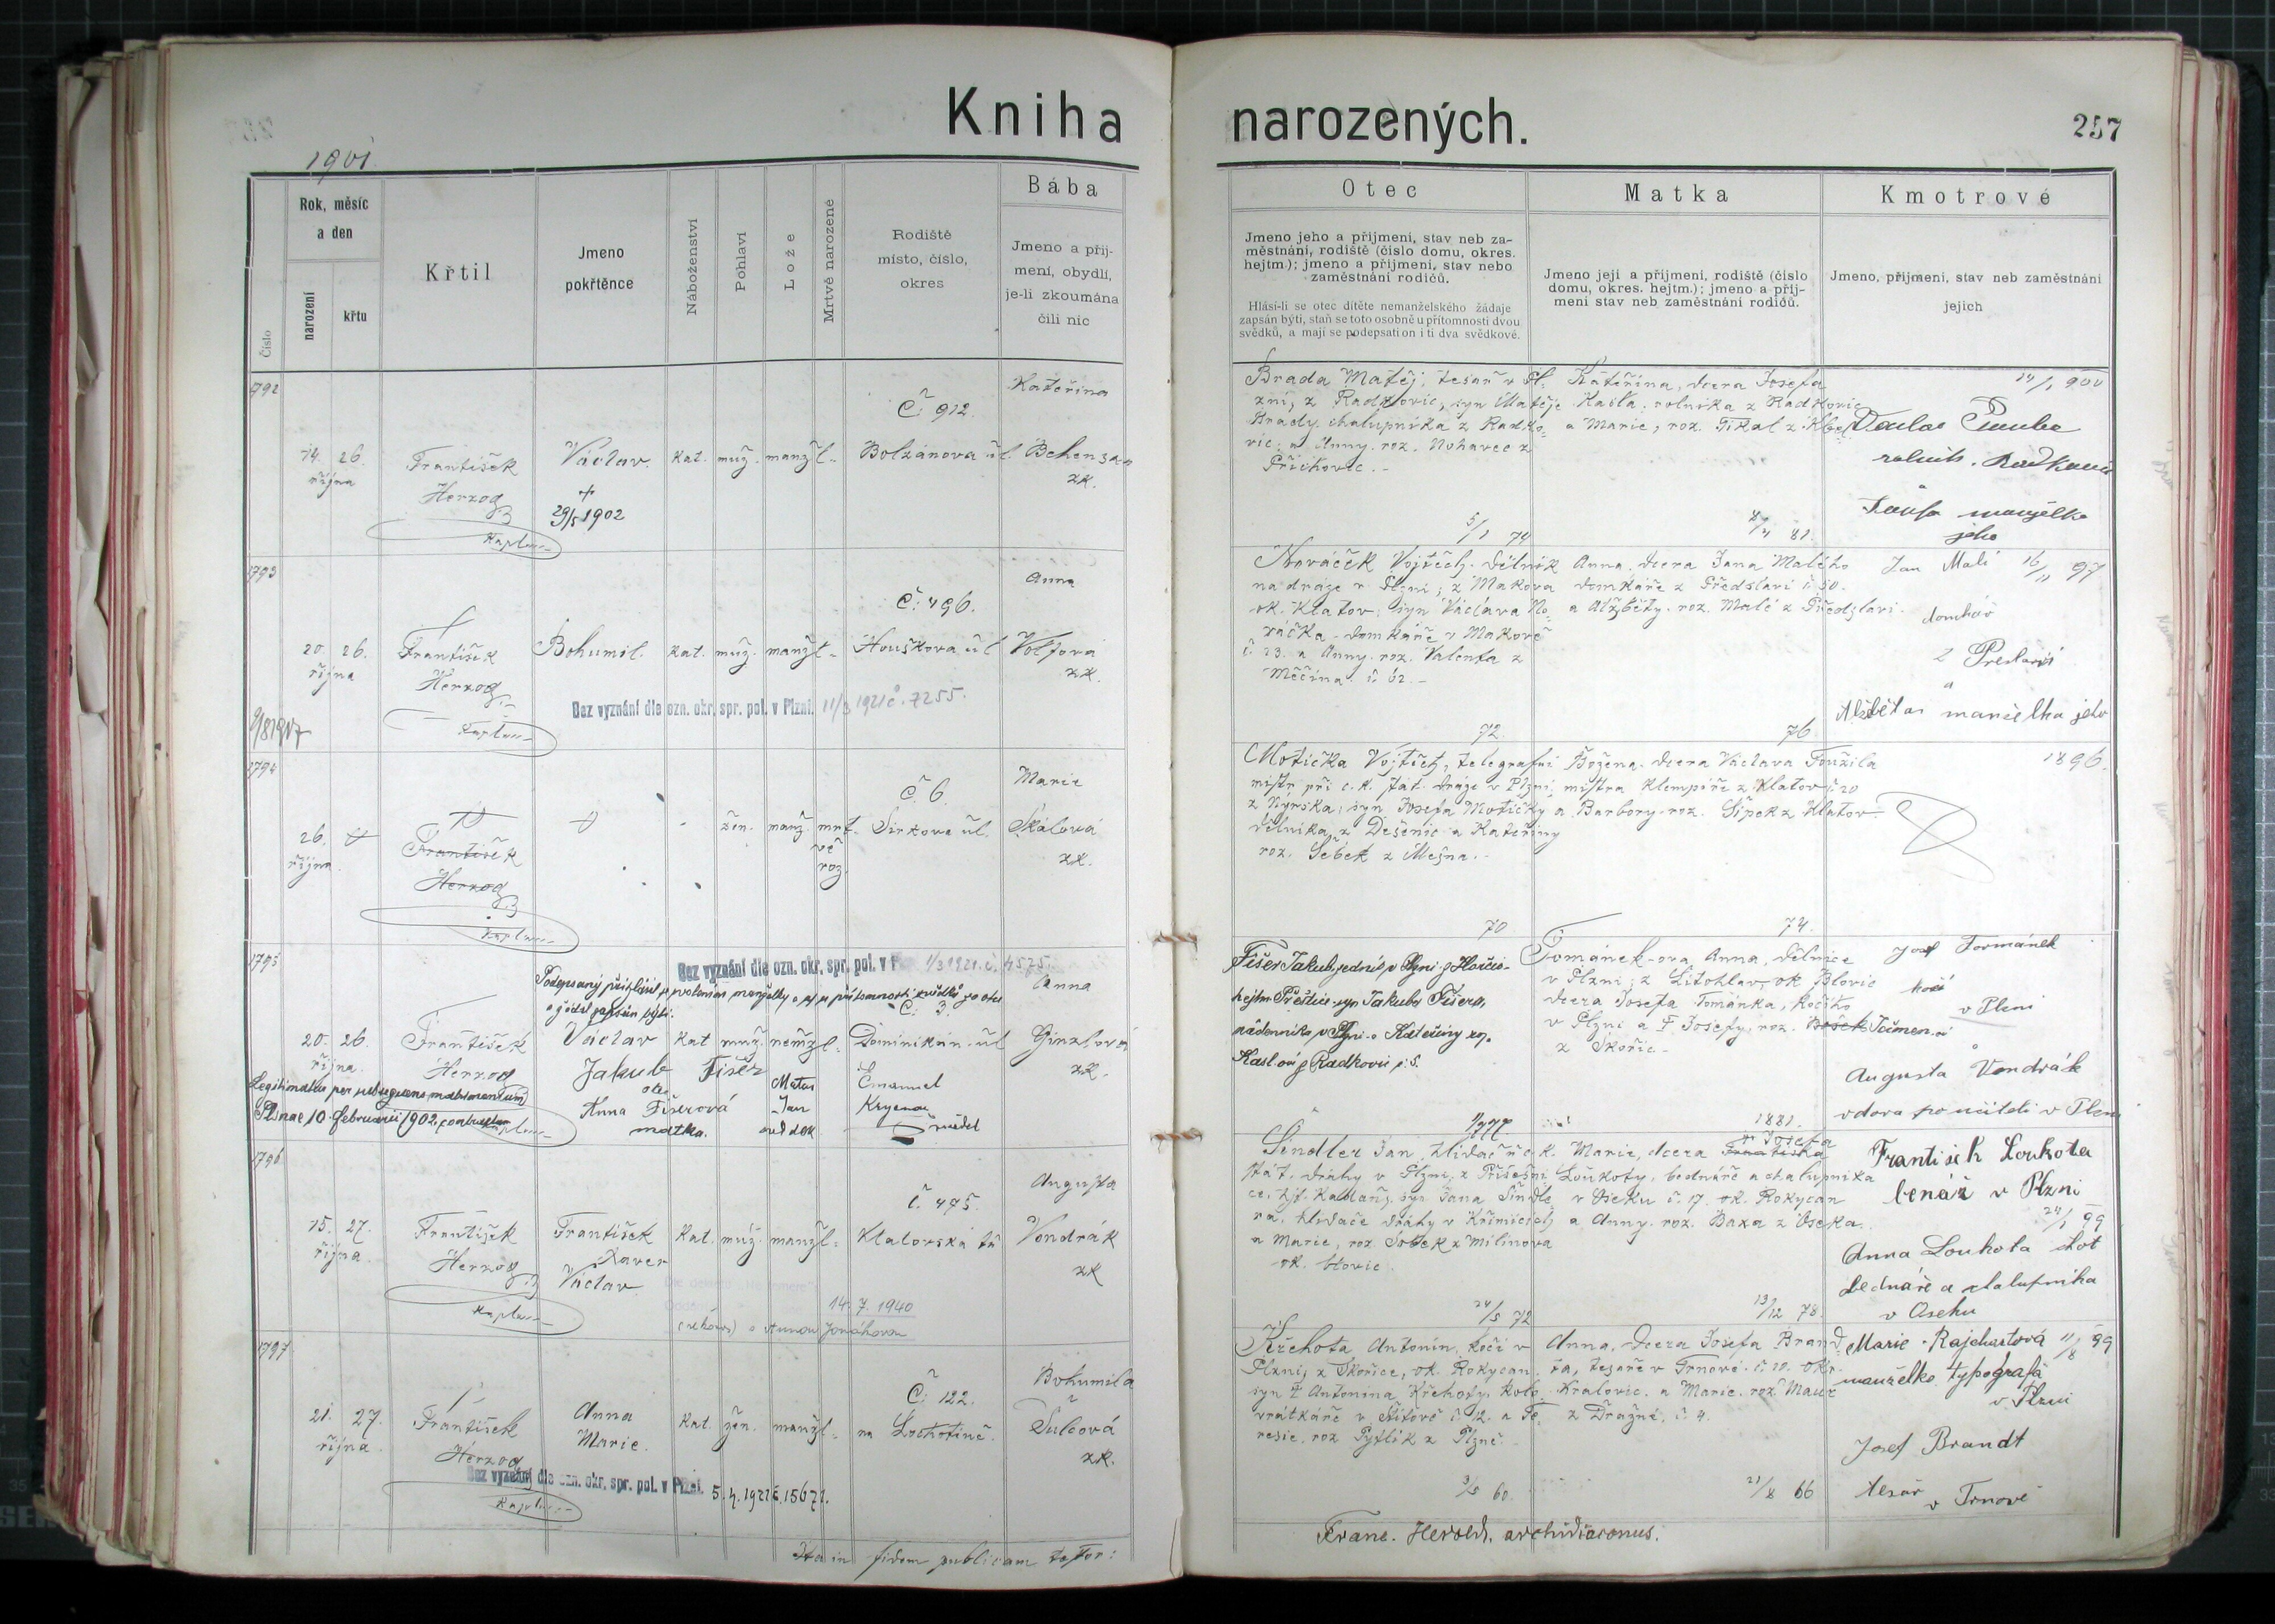 Kniha
narozených.
257
1901
Číslo
Rok, měsíc
a den
narození
křtu
Křtil
Jmeno
pokřtěnce
Náboženství
Pohlaví
Lože
Mrtvě narozené
Rodiště
místo, číslo,
okres
Bába
Jmeno a příj-
mení, obydlí,
je-li zkoumána
čili nic
Otec
Jmeno jeho a příjmení, stav neb za-
městnání, rodiště (číslo domu, okres.
hejtm.); jmeno a příjmení, stav nebo
zaměstnání rodičů.
Hlásí-li se otec dítěte nemanželského žádaje
zapsán býti, staň se toto osobně u přítomnosti dvou
svědků, a mají se podepsati on i ti dva svědkové.
Matka
Jmeno její a příjmení, rodiště (číslo
domu, okres. hejtm.); jmeno a příj-
mení stav neb zaměstnání rodičů.
Kmotrové
Jmeno, příjmení, stav neb zaměstnání
jejich
1792
14. 26.
října
František
Herzog
Kaplan
Václav.
+
29/5 1902
kat. muž. manžl.
Č. 912.
Bolzánova ul.
Kateřina
zk.
Brada Matěj, tesař v Pl-
zni, z Radkovic, syn Matěje
Brady, chalupníka z Radko-
vic, a Anny, roz. Nohavec z
Příchovic.
5/1 74
Kateřina, dcera Josefa
Kasla, rolníka z Radkovic
a Marie, roz. Tikal z
81.
14/1 900
rolník
manželka
jeho
1793
20. 26.
října
František
Herzog
Kaplan
Bohumil. kat. muž. manžl.
Č. 496.
Houškova ul
Anna
Volfová
zk.
Bez vyznání dle ozn. okr. spr. pol. v Plzni. 11/3 1921 č. 7255.
Nováček Vojtěch, dělník
na dráze v Plzni, z Makova
ok. Klatov, syn Václava No-
váčka, domkáře v Makově
č. 23. a Anny, roz. Valenta z
Měčína č. 62.
72.
Anna, dcera Jana Malého
domkáře z Předslavi č. 50.
a Alžběty, roz. Malé z Předslavi.
76
Jan Malí 16/11 97
domkář
z
a
manželka jeho
1794
26.
října
František
Herzog
Kaplan
žen. manž. mrt-
vě
roz.
Č. 6.
Sirkova ul.
Marie
Skálová
zk.
Motička Vojtěch, telegrafní
mistr při c. k. stát. dráze v Plzni,
z Nýrska, syn Josefa Motičky
dělníka z Dešenic a Kateřiny
roz. Šebek z
70
Božena, dcera Václava Toužila
mistra klempíře z Klatov č. 20
a Barbory, roz. Šípek z Klatov
74.
1896.
1795
Bez vyznání dle ozn. okr. spr. pol. v 1/3 1921. č. 4575.
20. 26.
října.
František
Herzog
Václav kat muž. nemžl.
Č. 3.
Dominikán. ul
Anna
Ginzlová
zk.
Jakub Fišer
otec
Anna Fišerová
matka.
Jan
svědek
Emanuel
svědek
Legitimatus per subsequens matrimonium
Plsnae 10. februarii 1902 contractum
Fišer Jakub,
hejtm. Přeštice, syn Jakuba Fišera,
nádenníka v Plzni a Kateřiny roz.
Kaslové z Radkovic č. 5.
Tománek-ova Anna, dělnice
v Plzni, z Litohlav, ok Blovic
dcera Josefa Tománka, kočího
v Plzni a † Josefy, roz.
z Skořic
1881.
Josef Tormánek
kočí
v Plzni
a
Augusta Vondrák
vdova po učiteli v Plzni
1796
15. 27.
října.
František
Herzog
Kaplan
František
Xaver
Václav
kat. muž. manžl.
Č. 475.
Klatovská tř
Augusta
Vondrák
zk
14. 7. 1940
Šindler Jan, hlídač c. k.
stát. dráhy v Plzni, z
syn Jana Šindle-
ra, hlídače dráhy v Křimicích
a Marie, roz. Sobek z Milínova
ok. Blovic.
24/5 72
Marie, dcera Františka Josefa
Loukoty, bednáře a chalupníka
v Oseku č. 17. ok. Rokycan
a Anny, roz. Baxa z Oseka.
13/12 78.
František Loukota
v Plzni
24/1 99
Anna Loukota choť
bednáře a chalupníka
v Oseku
1797
21. 27.
října.
František
Herzog
Kaplan
Anna
Marie.
kat. žen. manžl.
Č. 122.
na Lochotíně.
Bohumila
Šulcová
zk.
Bez vyznání dle ozn. okr. spr. pol. v Plzni. 5. 4. 1921 č. 15671.
Křehota Antonín, kočí v
Plzni, z Skořice, ok. Rokycan,
syn † Antonína Křehoty, kolo-
vrátkáře v Štítově č. 12. a Te-
resie, roz Pytlík z Plzně.
3/5 60.
Anna, dcera Josefa Brand-
ta, tesaře v Trnové č. 10. okr.
Kralovic, a Marie, roz. Maur
z Dražně, č. 4.
21/8 66
Marie Rajchartová 11/8 99
manželka typografa
v Plzni
Josef Brandt
tesař v Trnové
Ita in fidem publicam testor:
Franc. Herold, archidiaconus.